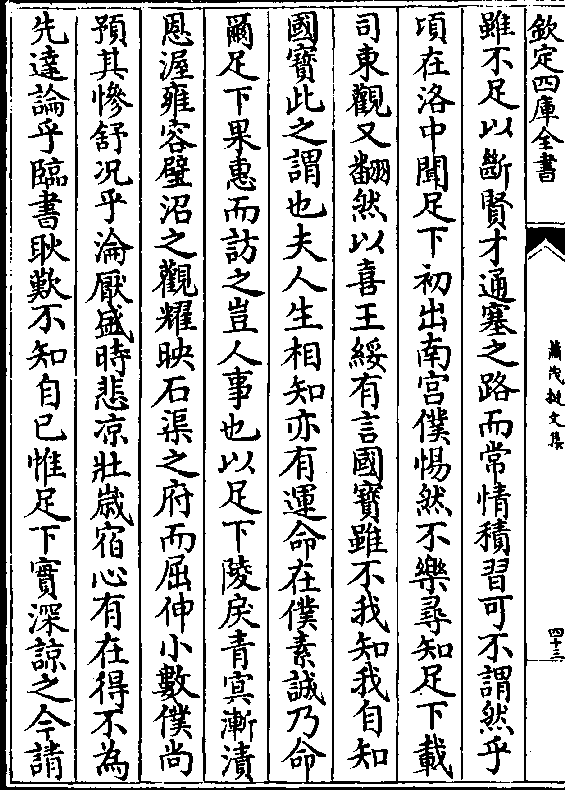 欽定四庫全書
蕭茂挺文集
四十三
雖不足以斷賢才通塞之路而常情積習可不謂然乎
頃在洛中聞足下初出南宫僕惕然不樂尋知足下載
司東觀又翻然以喜王綏有言國寶雖不我知我自知
國寶此之謂也夫人生相知亦有運命在僕素誠乃命
爾足下果惠而訪之豈人事也以足下陵戾青㝠漸漬
恩渥雍容璧沼之觀耀映石渠之府而屈伸小數僕尚
預其慘舒况乎淪厭盛時悲凉壯嵗宿心有在得不為
先達論乎臨書耿歎不知自已惟足下實深諒之今請